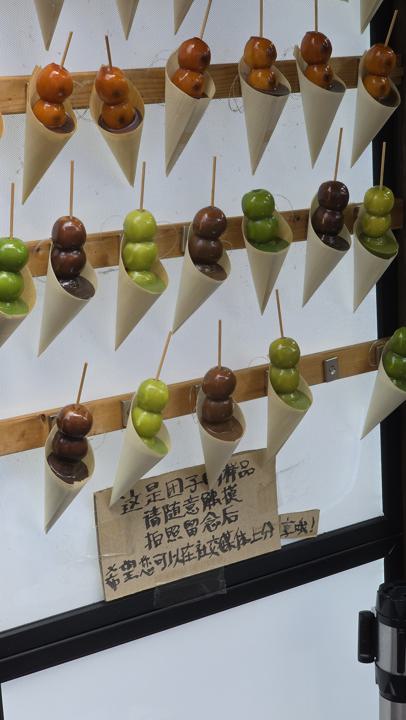 这是团子 样品
请随意触摸
拍照留念后
希望您可以在社交媒体上分享哦！